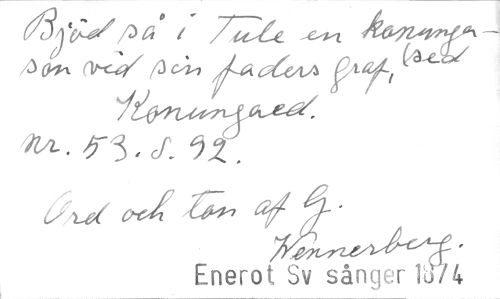 Bjöd så i Tule en konunga-
son vid sin faders graf, (sed
Konungaed.
nr. 53. s. 92.
Ord och ton af G.
Wennerberg.
Enerot Sv sånger 1874